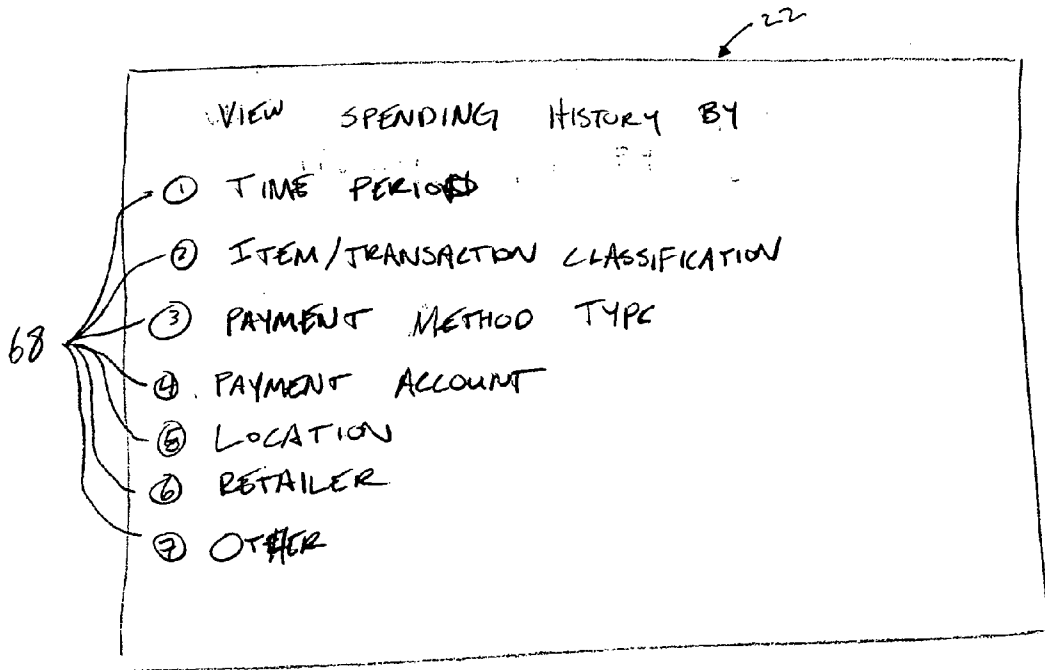 22
VIEW SPENDING HISTORY BY
① TIME PERIOD
② ITEM/TRANSACTION CLASSIFICATION
③ PAYMENT METHOD TYPE
68
④ PAYMENT ACCOUNT
⑤ LOCATION
⑥ RETAILER
⑦ OTHER